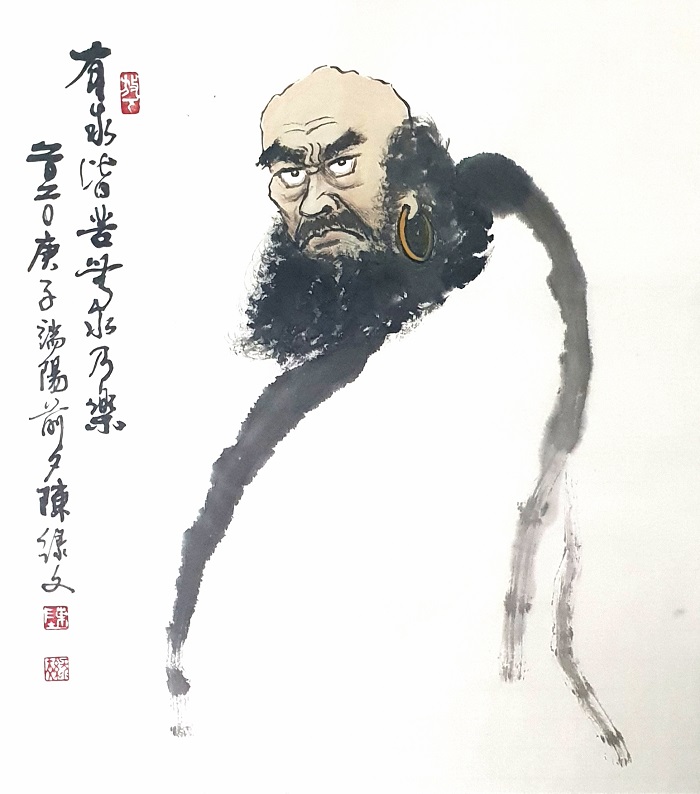 放下
有求皆苦無求乃樂
二〇二〇庚子端陽前夕陳綠文